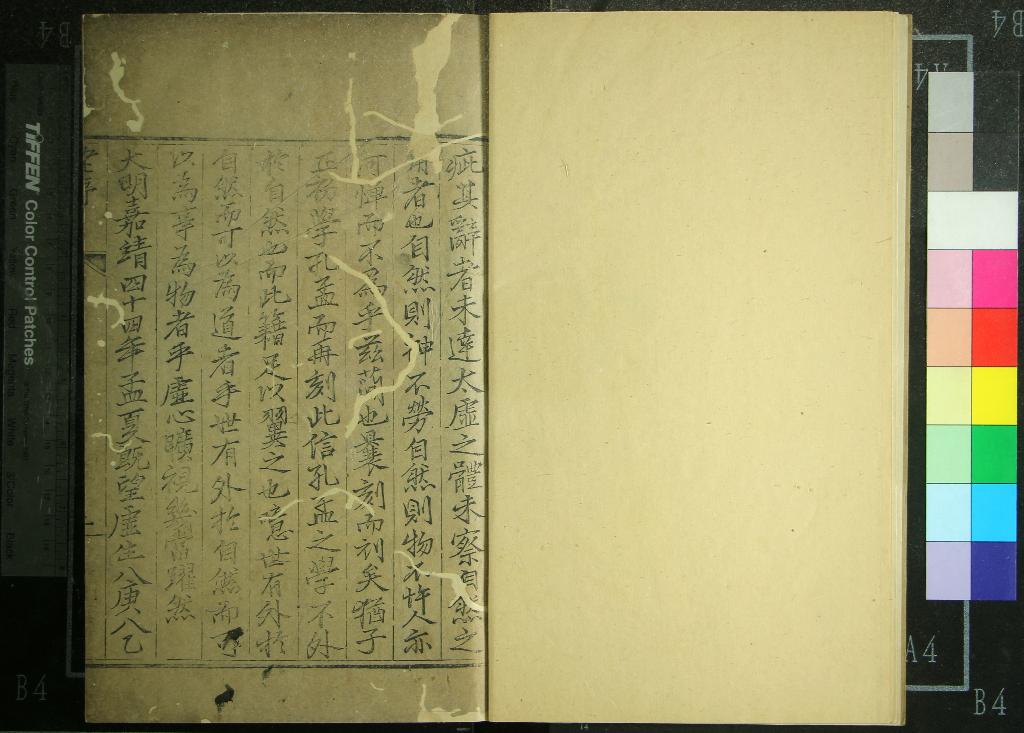 疵其辭者未達太虛之體未察自然之
者也自然則神不勞自然則物不忤人亦
何憚而不為乎茲蘭也曩刻而刓矣猶子
正務學孔孟而再刻此信孔孟之學不外
於自然也而此籍足以翼之也意世有外於
自然而可以為道者乎世有外於自然而可
以為事為物者乎虛心曠視幾當躍然
大明嘉靖四十四年孟夏既望虛生八庚八乙
序
TIFFEN Color Control Patches
B4
A4
A4
B4
B4
B4